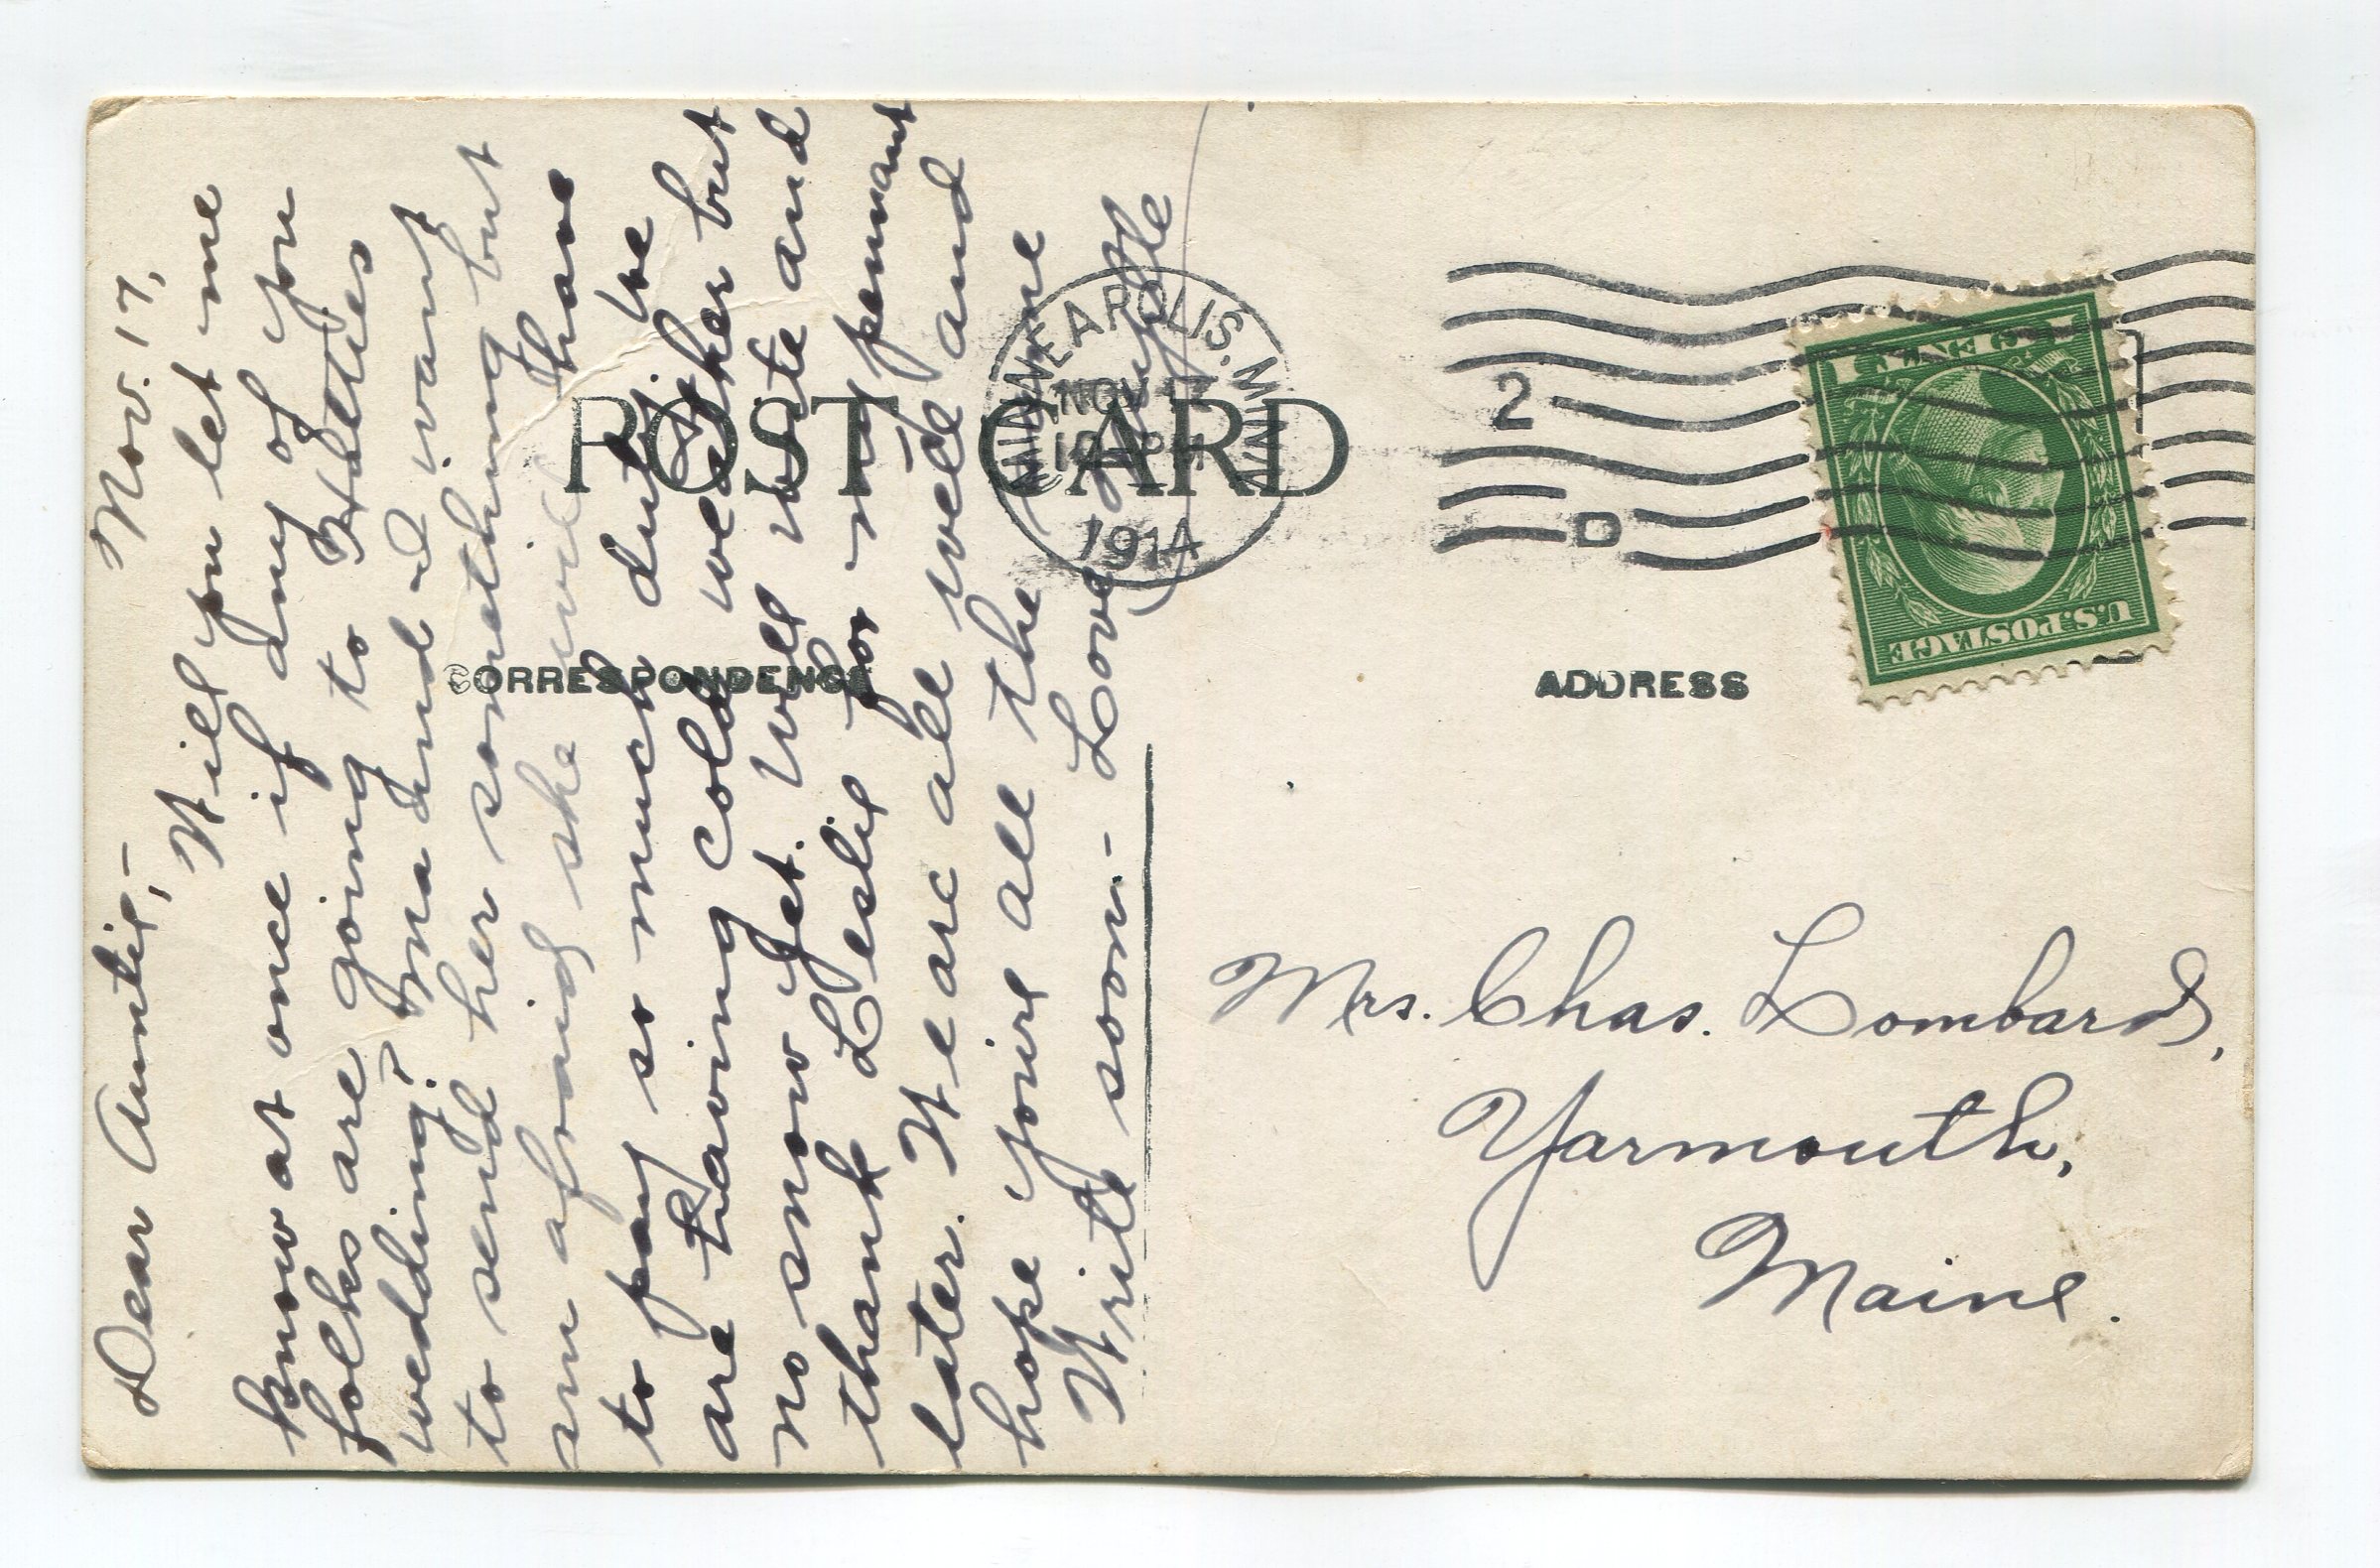 POST CARD
CORRESPONDENCE
ADDRESS
Nov. 17,
Dear Auntie,-
Will you let me
know at once if any of you
folks are going to Hatties
wedding? Ma and I want
to send her something but
am afraid she will have
to pay so much duty. We
are having cold weather but
no snow yet. Will write and
thank Leslie for my pennant
later. We are all well and
hope youre all the same
Write soon - Love
MINNEAPOLIS, MINN.
NOV 17
1914
2
D
ONE CENT
U.S. POSTAGE
Mrs. Chas. Lombard,
Yarmouth,
Maine.